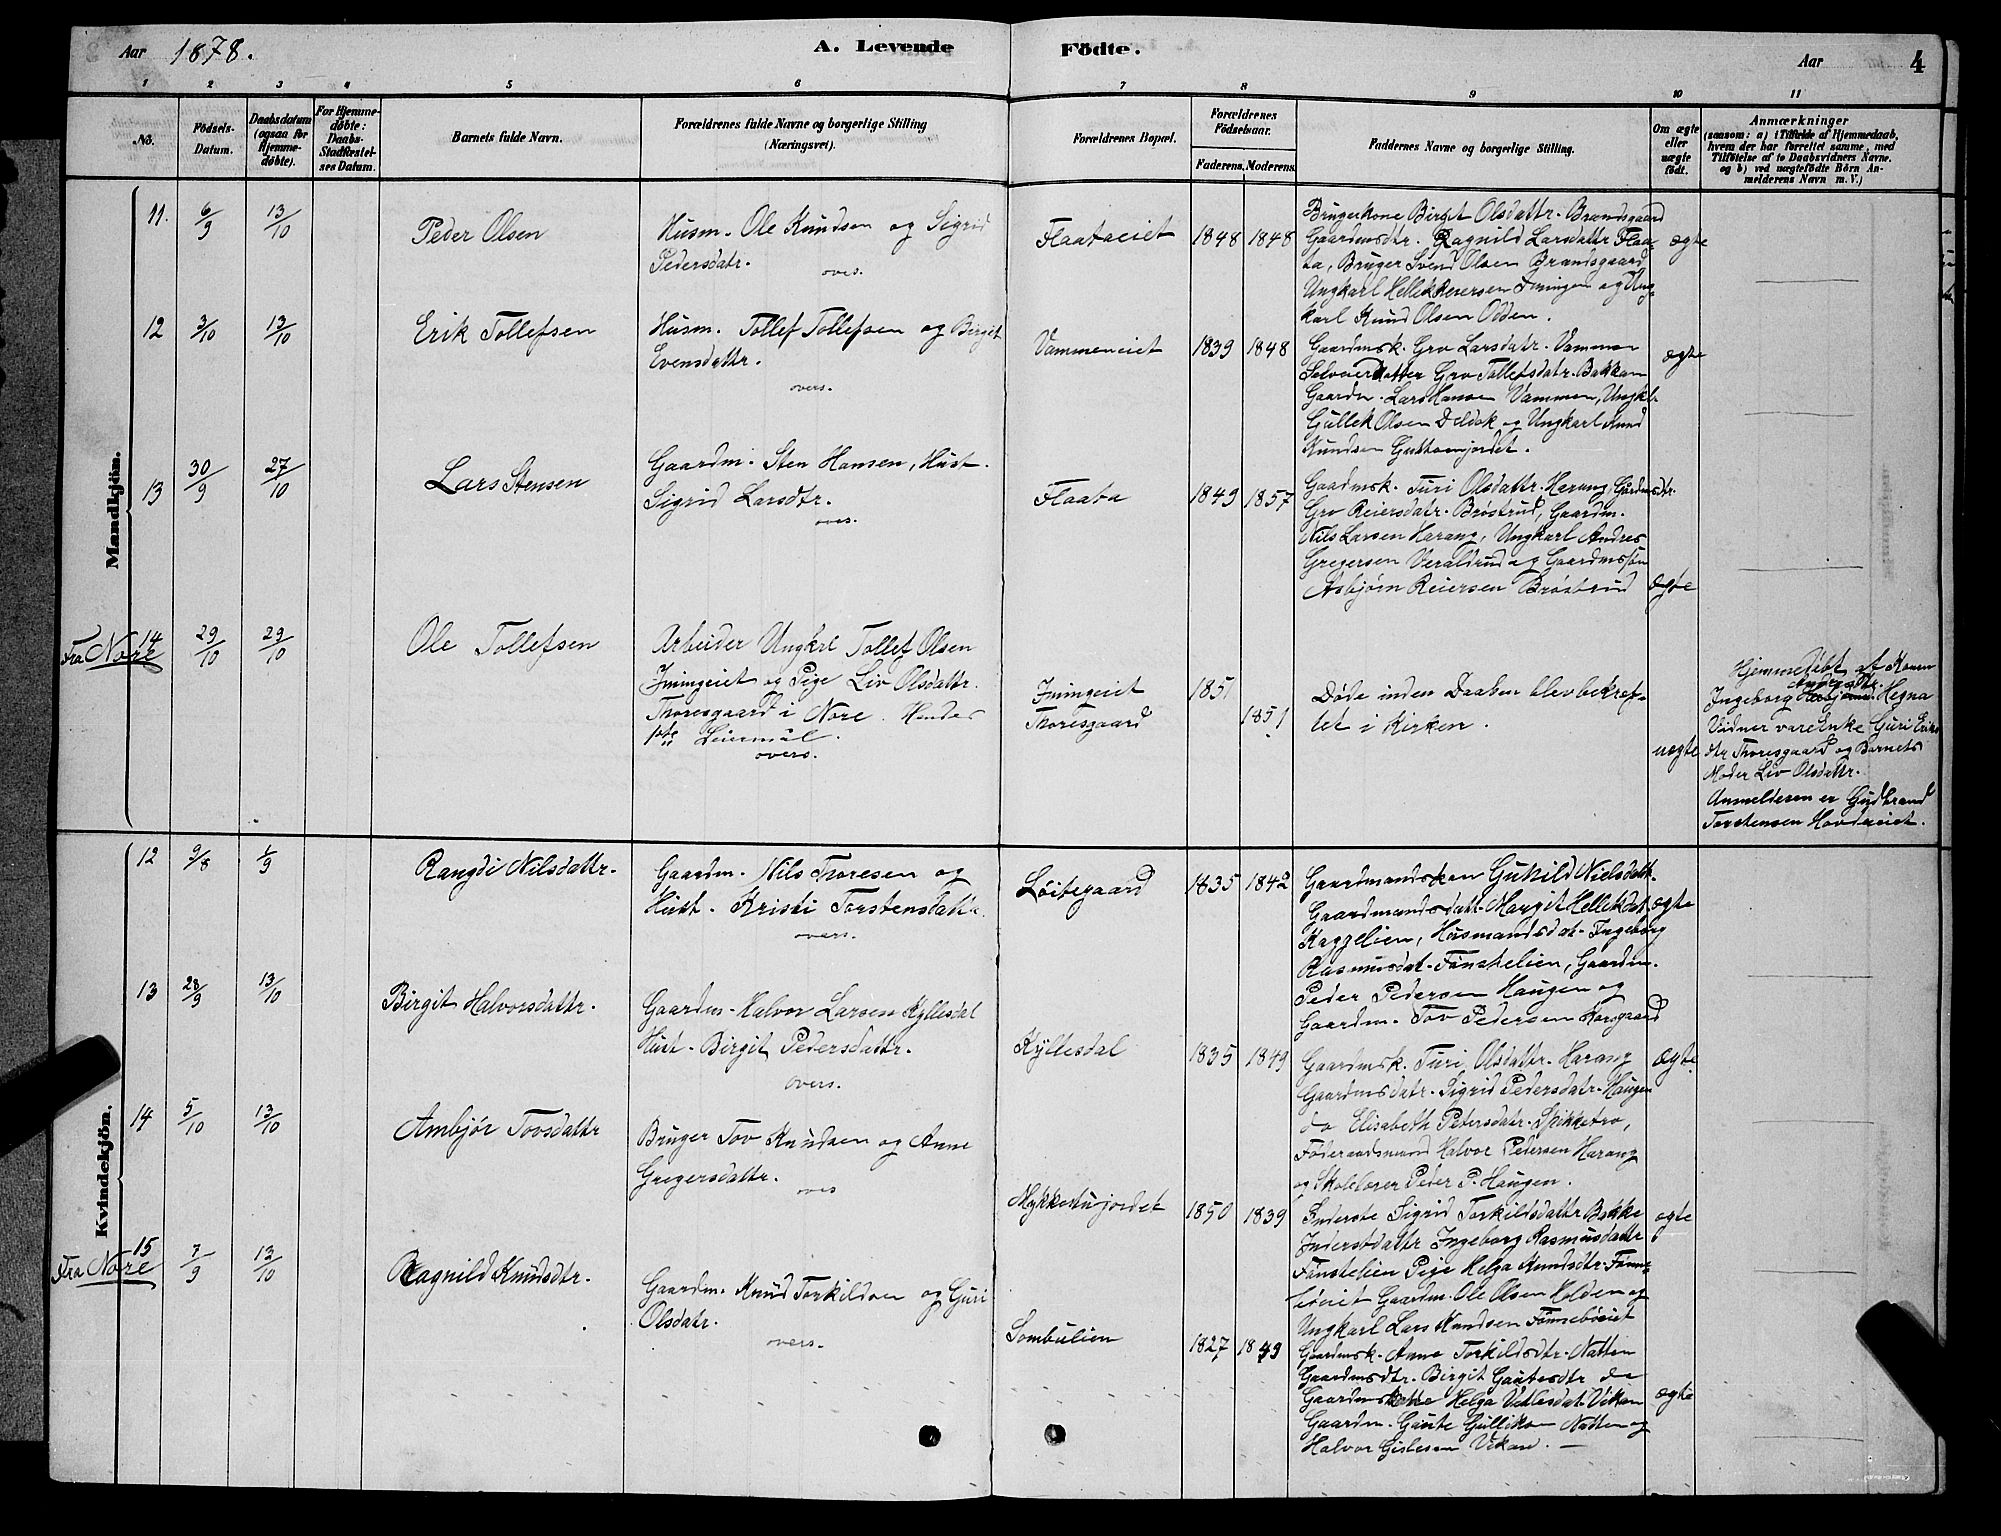 Aar 1878.
A. Levende Födte.
Aar 4
1 2 3 4 5 6 7 8 9 10 11
No.
Födsels-Datum.
Daabsdatum (ogsaa for Hjemme-döbte).
For Hjemme-döbte: Daabs-Stadfæstel-ses Datum.
Barnets fulde Navn.
Forældrenes fulde Navne og borgerlige Stilling (Næringsvei).
Forældrenes Bopæl.
Forældrenes Födselsaar.
Faderens. Moderens.
Faddernes Navne og borgerlige Stilling.
Om ægte eller uægte födt.
Anmærkninger
(saasom: a) i Tilfælde af Hjemmedaab,
hvem der har forrettet samme, med
Tilföielse af to Daabsvidners Navne.
og b) ved uægtefödte Börn An-
melderens Navn m.V.)
Mandkjön.
11. 6/9 13/10
Peder Olsen
Husm. Ole Knudsen og Sigrid
Pedersdatr.
overs.
Flaataeiet
1848 1848
Brugerkone Birgit Olsdattr. Brandsgaard
Gaardmsdtr. Ragnild Larsdattr Flaa-
ta, Bruger Svend Olsen Brandsgaard
Ungkarl Hellek Reiersen Iningen og Ung-
karl Knud Olsen Odden.
ægte
12 3/10 13/10
Erik Tollefsen
Husm. Tollef Tollefsen og Birgit
Evensdattr.
overs.
Vammeneiet
1839 1848
Gaardmsk. Gro Larsdatr. Vammen
Selveierdatter Gro Tollefsdatr. Bakkan
Gaardm. Lars Hansen Vammen, Ungkl.
Gullek Olsen Deldok og Ungkarl Knud
Knudsen Guttormjordet.
ægte
13 30/9 27/10
Lars Stensen
Gaardm. Sten Hansen, Hust.
Sigrid Larsdtr.
overs.
Flaata
1849 1857
Gaadmsk. Turi Olsdattr. Harang Gårdmsdtr.
Gro Reiersdatr. Bröstrud, Gaardm.
Nils Larsen Harang, Ungkarl Andres
Gregersen Veraldrud og Gaardmssön
Asbjörn Reiersen Bröstrud
ægte
Fra Nore
14 29/10 29/10
Ole Tollefsen
Arbeider Ungkrl Tollef Olsen
Iningeiet og Pige Liv Olsdattr.
Thoresgaard i Nore. Hendes
1ste Leiermål.
overs.
Iningeiet
Thoresgaard
1851
1851
Døde inden Daaben blev bekræf-
tet i Kirken.
uægte
Hjemmedöbt af Konen
Ingeborg Hegna
Vidner vare Enke Guri Eriks
dtr Thoresgaard og Barnets
Moder Liv Olsdattr.
Anmelderen er Gudbrand
Torstensen Hovdeeiet.
Kvindekjön.
12 9/8 1/9
Rangdi Nilsdattr.
Gaardm. Nils Thoresen og
Hust. Kristi Torstensdattr.
overs.
Löitegaard
1835 1842
Gaardmandskon Gunild Nielsdatt.
Gaardmandsdatt. Margit Helleksdat.
Kaggelien, Husmandsdat. Ingeborg
Rasmusdat. Fönstelien, Gaardm.
Peder Pedersen Haugen og
Gaardm. Tov Pedersen Korsgaard
ægte
13 28/9 13/10
Birgit Halvorsdattr.
Gaardm. Halvor Larsen Kyllesdal
Hust. Birgit Pedersdattr.
overs.
Kyllesdal
1835 1849
Gaardmsk. Turi Olsdattr. Harang
Gaardmsdatr. Sigrid Pedersdatr. Haugen
do Elisabeth Petersdatr. Spikketro,
Föderaadsmand Halvor Pedersen Harang
og Skolelærer Peder P. Haugen.
ægte
14 5/10 13/10
Ambjör Tovsdattr
Bruger Tov Knudsen og Anne
Gregersdattr.
overs
Mykkestujordet
1850 1839
Inderste Sigrid Torkildsdattr Bakke
Inderstdattr Ingeborg Rasmusdattr
Fönstelien Pige Helga Knudsdtr. Fönne-
böeiet Gaardm. Ole Olsen Holden og
Ungkarl Lars Knudsen Fönneböeiet
ægte
Fra Nore
15 7/9 13/10
Ragnild Knudsdtr.
Gaardm. Knud Torkildsen og Guri
Olsdatr.
overs.
Sombulien
1827 1843
Gaardmsk. Anne Torkildsdtr. Natten
Gaardmsdtr. Birgit Gautesdtr do
Gaardmskone Helga Vetlesdat. Vikan
Gaardm. Gaute Gulliksen Natten og
Halvor Gislesen Vikan.
ægte